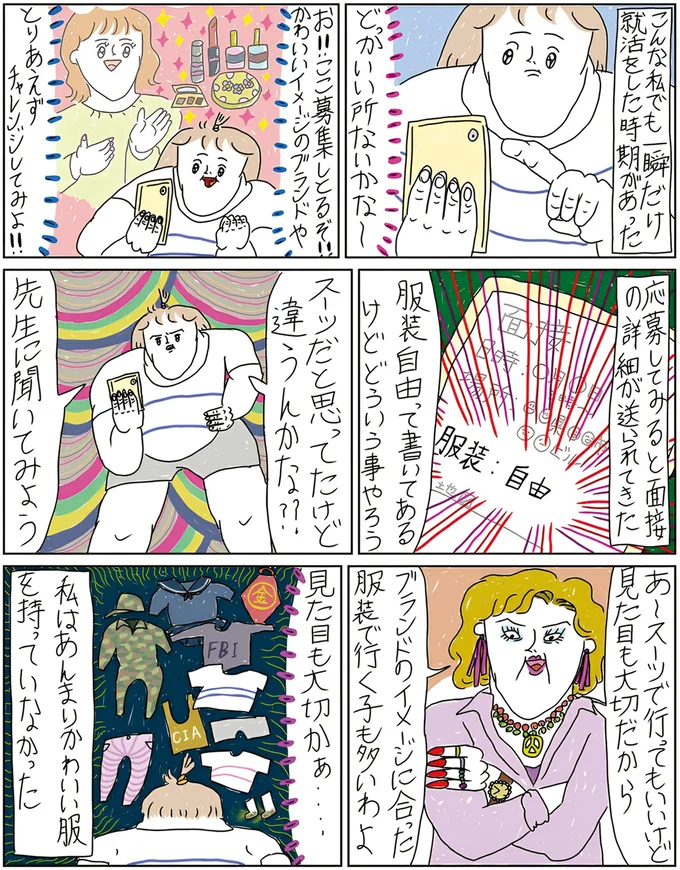 こんな私でも一瞬だけ
就活をした時期があった
どがいい所ないかな〜
お!!ここ募集しとるぞ!!
かわいいイメージのブランドや
とりあえず
チャレンジしてみよ!!
応募してみると面接
の詳細が送られてきた
面接
日時:〇月〇日
場所:
ビル
服装:自由
服装自由って書いてある
けどどういう事やろう
スーツだと思ってたけど
違うんかな??
先生に聞いてみよう
あ〜スーツで行ってもいいけど
見た目も大切だから
ブランドのイメージに合った
服装で行く子も多いわよ
見た目も大切かぁ・・・
金
FBI
CIA
私はあんまりかわいい服
を持っていなかった